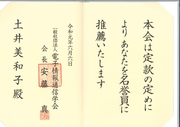 本会は定款の定めに
よりあなたを名誉員に
推薦いたします
令和元年六月六日
一般社団法人電子情報通信学会
会長 安藤 真
土井美和子殿